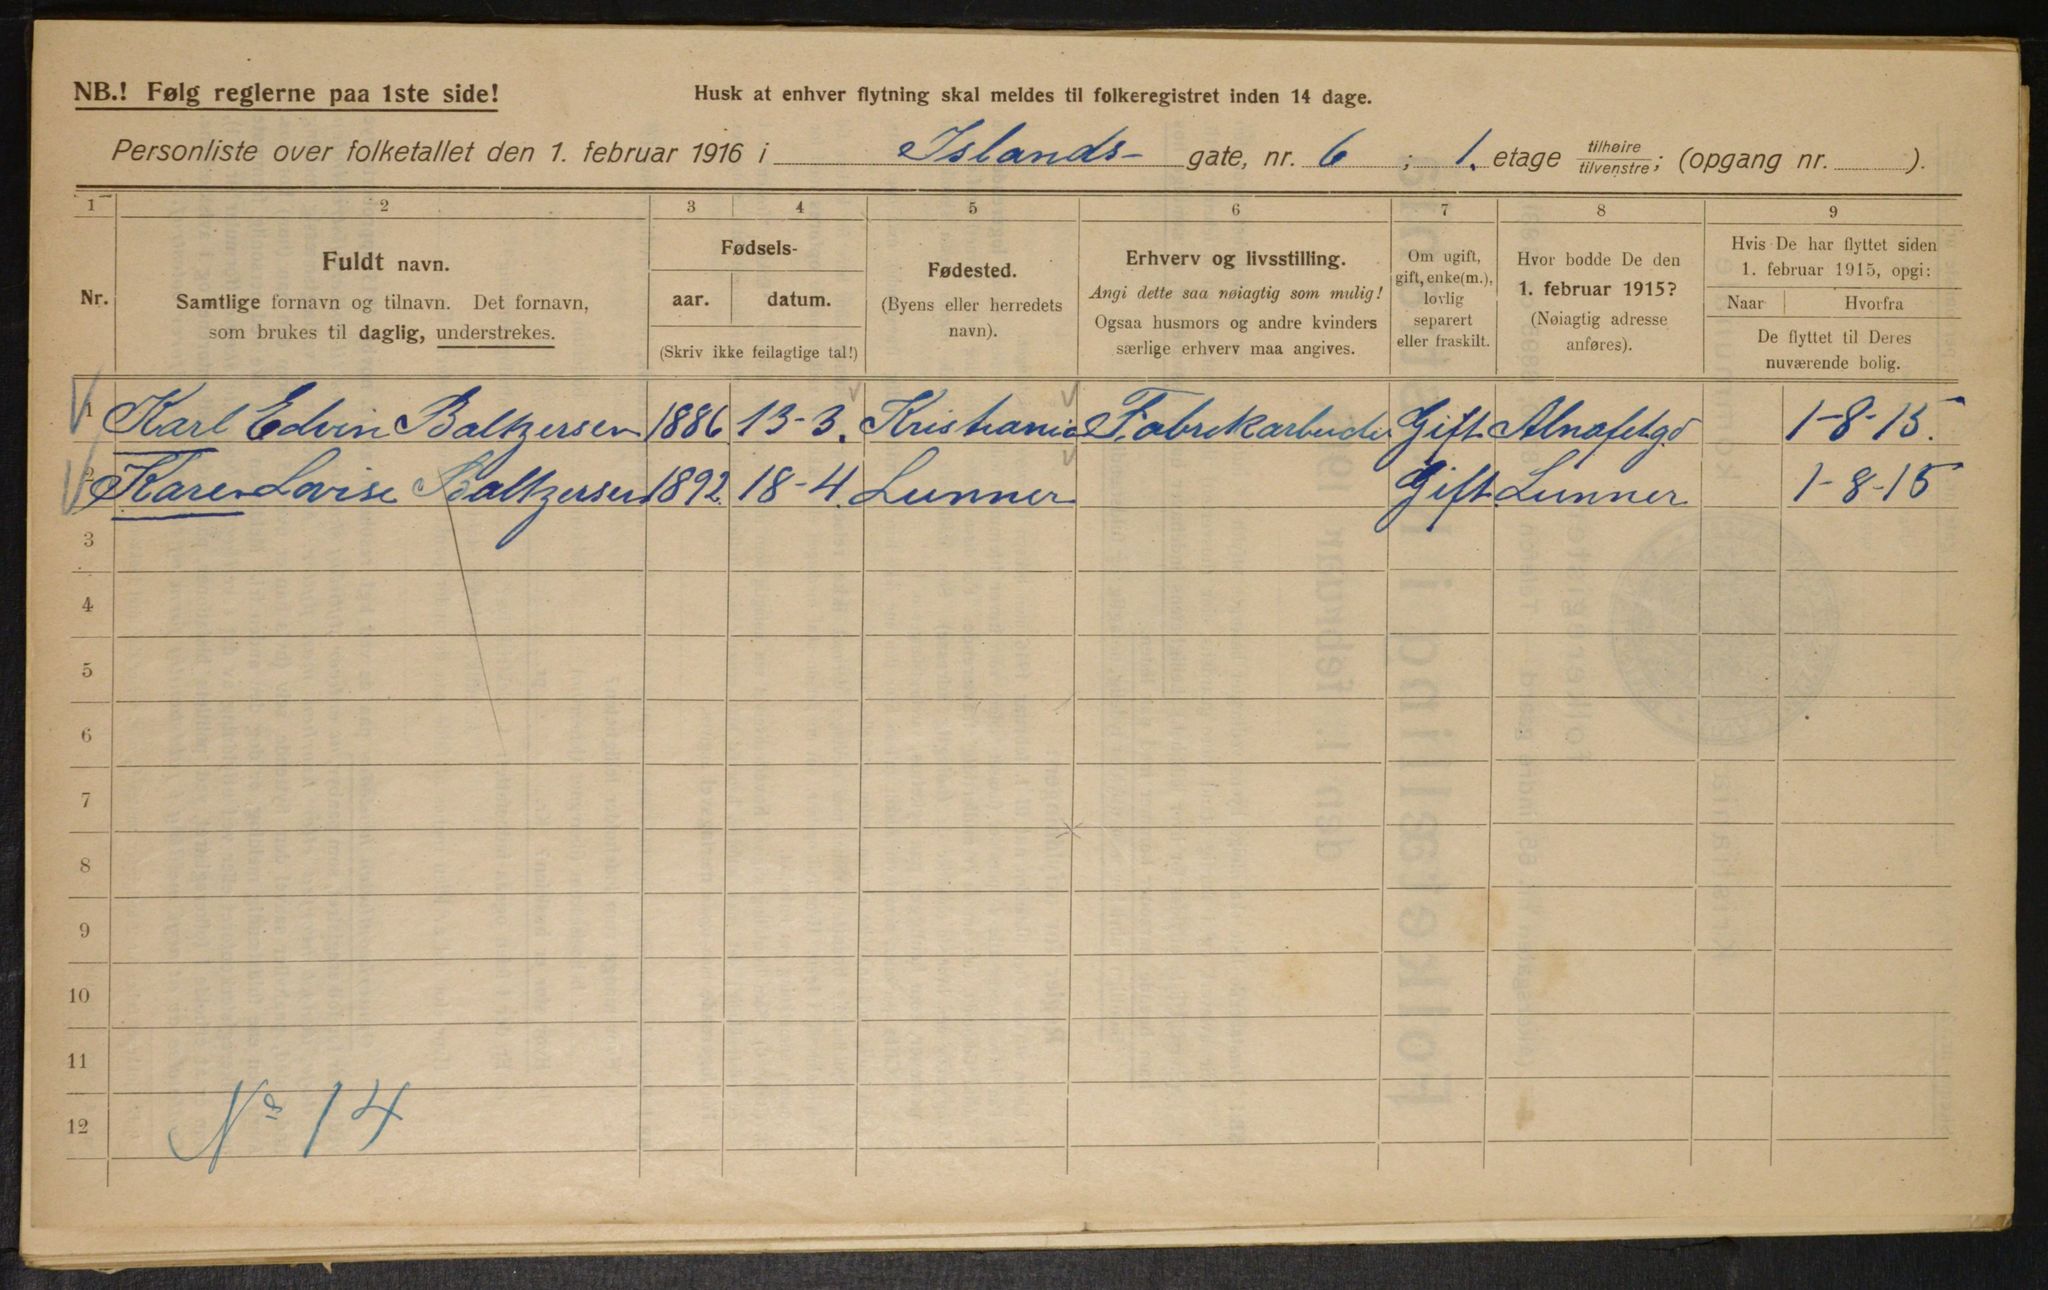 NB.! Følg reglerne paa 1ste side!
Husk at enhver flytning skal meldes til folkeregistret inden 14 dage.
Personliste over folketallet den 1. februar 1916 i Islands- gate, nr. 6 ; 1. etage tilhøire/tilvenstre; (opgang nr. ).
1 2 3 4 5 6 7 8 9
Nr.
Fuldt navn.
Samtlige fornavn og tilnavn. Det fornavn,
som brukes til daglig, understrekes.
Fødsels-
aar. datum.
(Skriv ikke feilagtige tal!)
Fødested.
(Byens eller herredets
navn).
Erhverv og livsstilling.
Angi dette saa nøiagtig som mulig!
Ogsaa husmors og andre kvinders
særlige erhverv maa angives.
Om ugift,
gift, enke(m.),
lovlig
separert
eller fraskilt.
Hvor bodde De den
1. februar 1915?
(Nøiagtig adresse
anføres).
Hvis De har flyttet siden
1. februar 1915, opgi:
Naar Hvorfra
De flyttet til Deres
nuværende bolig.
1 Karl Edvin Baltzersen 1886 13-3. Kristiania Fabrikarbeider Gift 1-8-15.
2 Karen Lovise Baltzersen 1892 18-4. Lunner Gift Lunner 1-8-15
3
4
5
6
7
8
9
10
11
12
No 14